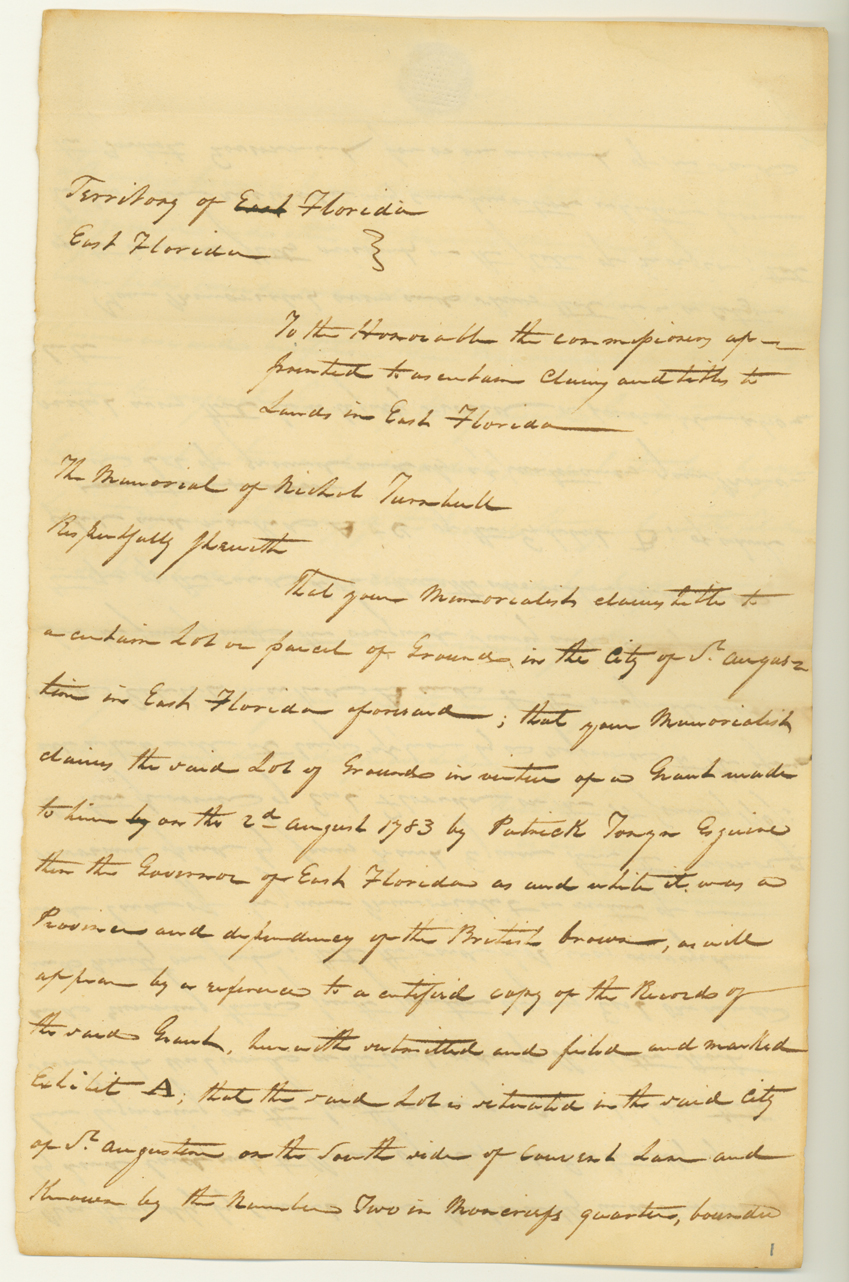 Territory of East Florida
East Florida }
To the Honorable the commissioners ap-
pointed to ascertain claims and titles to
Lands in East Florida
The Memorial of Nichol Turnbull
Respectfully Sheweth
That your Memorialist claims title to
a certain Lot or parcel of Ground in the City of St. Augus-
tine in East Florida aforesaid; that your Memorialist
claims the said Lot of Ground in virtue of a Grant made
to him by on the 2d August 1783 by Patrick Tonyn Esquire
then the Governor of East Florida as and while it was a
Province and dependency of the British Crown, as will
appear by a reference to a certified copy of the Records of
the said Grant, herewith submitted and filed and marked
Exhibit A; that the said Lot is situated in the said City
of St. Augustine on the South side of Convent Lane and
Known by the Number Two in Moncriefs quarter, bounded
1